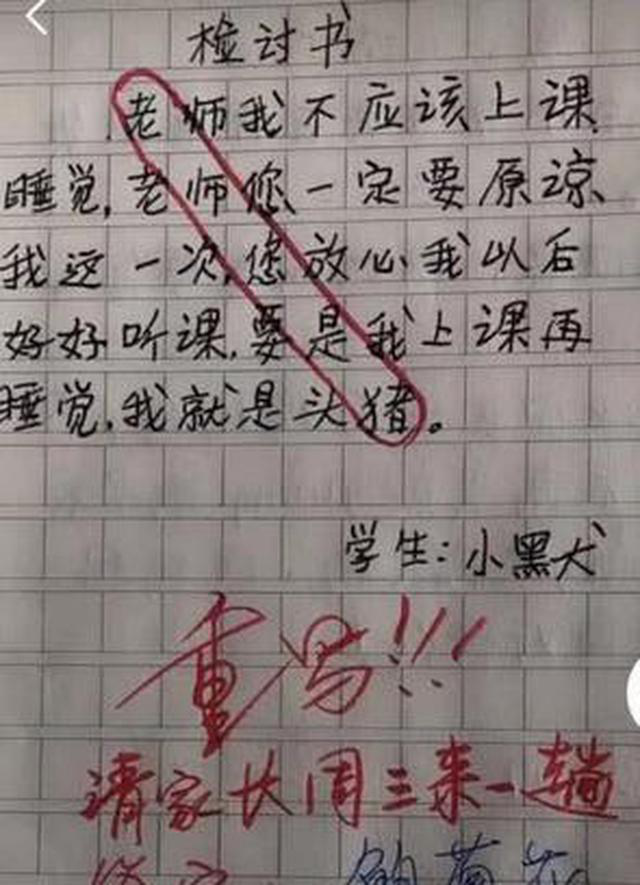 检讨书
老师我不应该上课
睡觉,老师您一定要原谅
我这一次,您放心我以后
好好听课,要是我上课再
睡觉,我就是头猪。
学生:小黑犬
重写!!!
请家长周三来一趟